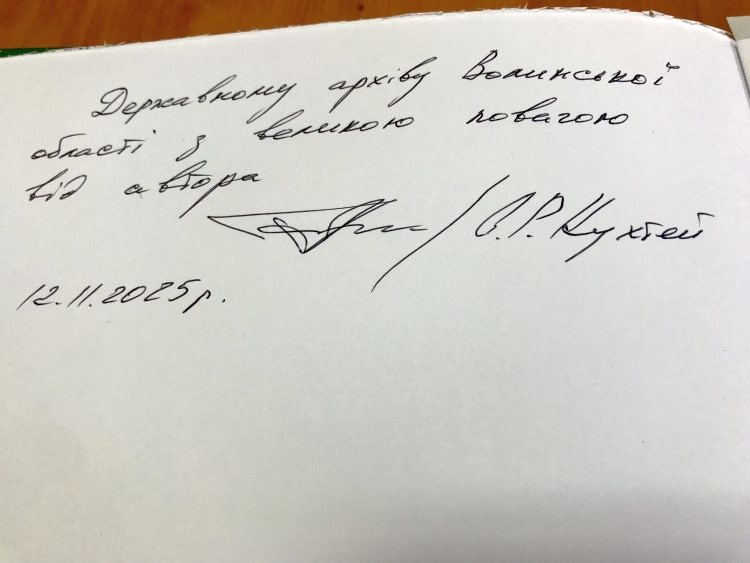 Державному архіву Волинської
області з великою повагою
від автора
/ О.Р. Кухтей
12.11.2025р.